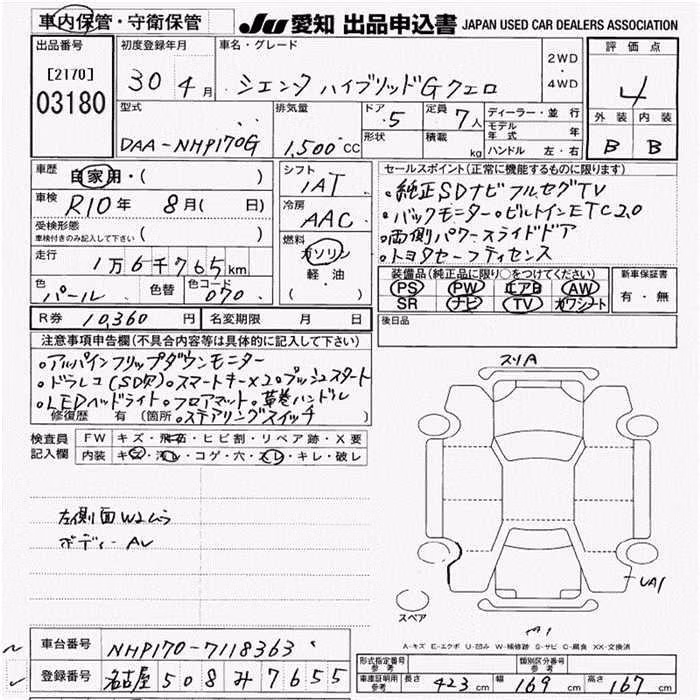 車内保管・守衛保管
JU 愛知 出品申込書 JAPAN USED CAR DEALERS ASSOCIATION
出品番号
[2170]
03180
初度登録年月
30 4月
車名・グレード
シエンタ ハイブリッドG クエロ
2WD
・
4WD
評価点
4
外装 内装
B B
型式
DAA-NHP170G
排気量
1,500cc
ドア 5
定員 7人
形状
積載 kg
ディーラー・並行
モデル年式 年
ハンドル 左・右
車歴 自家用・( )
車検 R10年 8月( 日)
受検形態
車検付きのみ記入して下さい ( )
走行 1万6千765km
色 パール
色替
色コード 070
シフト
1AT
冷房
AAC
燃料
ガソリン
軽・油
( )
セールスポイント(正常に機能するものに限ります)
・純正SDナビフルセグTV
・バックモニター・ビルトインETC2.0
・両側パワースライドドア
・トヨタセーフティセンス
装備品(純正品に限り○をつけてください)
PS PW エアB AW
SR ナビ TV カワシート
新車保証書
有・無
R券 10,360円
名変期限 月 日
後日品
注意事項申告欄(不具合内容等は具体的に記入して下さい)
・アルパインフリップダウンモニター
・ドラレコ(SD欠)・スマートキー×2・プッシュスタート
・LEDヘッドライト・フロアマット・革巻ハンドル
修復歴 有 (箇所 ・ステアリングスイッチ )
検査員記入欄
FW キズ・飛石・ヒビ割・リペア跡・X要
内装 キズ・汚レ・コゲ・穴・スレ・キレ・破レ
左側面W2ムラ
ボディーAU
スリA
UA1
スペア
A-キズ E-エクボ U-凹み W-補修跡 S-サビ C-腐食 XX-交換済
車台番号 NHP170-7118363
登録番号 名古屋 508 み 7655
形式指定番号 参考
類別区分番号 参考
車庫証明用 参考
長さ 423cm 幅 169cm 高さ 167cm